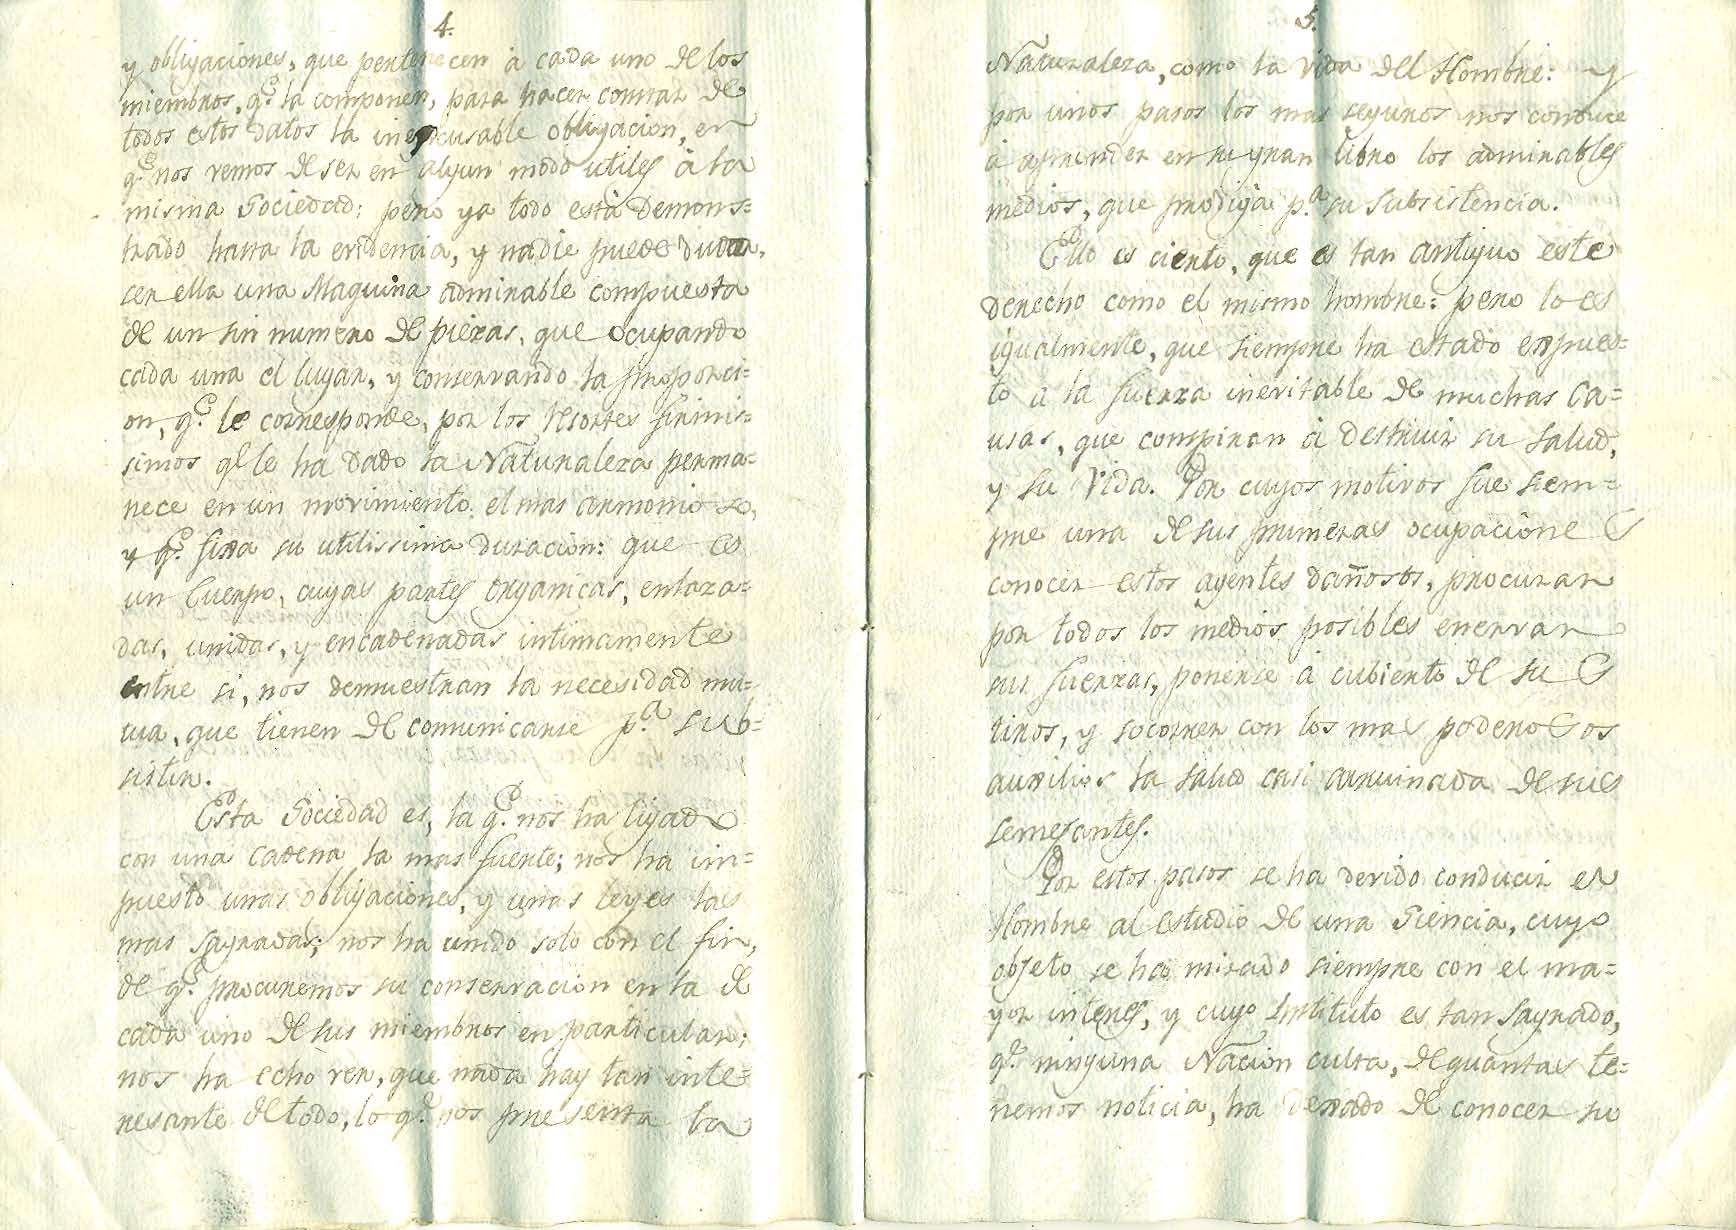 4.
y obligaciones, que pertenecen à cada uno de los
miembros, q.e la componen, para hacer constar de
todos estos datos la inexcusable obligacion, en
q.e nos vemos de ser en algun modo utiles à la
misma Sociedad; pero ya todo està demons=
trado hasta la evidencia, y nadie puede dudar,
ser ella una Maquina admirable compuesta
de un sin numero de piezas, que ocupando
cada una el lugar, y conservando la proporci=
on, q.e le corresponde, por los resortes finiris=
simos q.e le ha dado la Naturaleza perma=
nece en un movimiento el mas armonioso,
y q.e fixa su utilissima duracion: que es
un Cuerpo, cuyas partes organicas, enlaza=
das, unidas, y encadenadas intimamente
entre si, nos demuestran la necesidad mu=
tua, que tienen de comunicarse p.a sub=
sistir.
Esta Sociedad es, la q.e nos ha ligado
con una cadena la mas fuerte; nos ha im=
puesto unas obligaciones, y unas leyes las
mas sagradas; nos ha unido solo con el fin,
de q.e procuremos su conservacion en la de
cada uno de sus miembros en particular;
nos ha echo ver, que nada hay tan inte=
resante de todo, lo q.e nos presenta la
5.
Naturaleza, como la vida del Hombre: y
por unos pasos los mas seguros nos conduce
à aprender en su gran libro los admirables
medios, que prodiga p.a su subsistencia.
Ello es cierto, que es tan antiguo este
derecho como el mismo hombre: pero lo es
igualmente, que siempre ha estado expues=
to a la fuerza inevitable de muchas Ca=
usas, que conspiran à destruir su salud,
y su vida. Por cuyos motivos fue siem=
pre una de sus primeras ocupaciones
conocer estos agentes dañosos, procurar
por todos los medios posibles enervar
sus fuerzas, ponerse à cubierto de sus
tiros, y socorrer con los mas poderosos
auxilios la salud casi arruinada de sus
semejantes.
Por estos pasos se ha devido conducir el
Hombre al estudio de una Siencia, cuyo
objeto se ha mirado siempre con el ma=
yor interes, y cuyo Instituto es tan sagrado,
q.e ninguna Nacion culta, de quantas te=
nemos noticia, ha dexado de conocer su